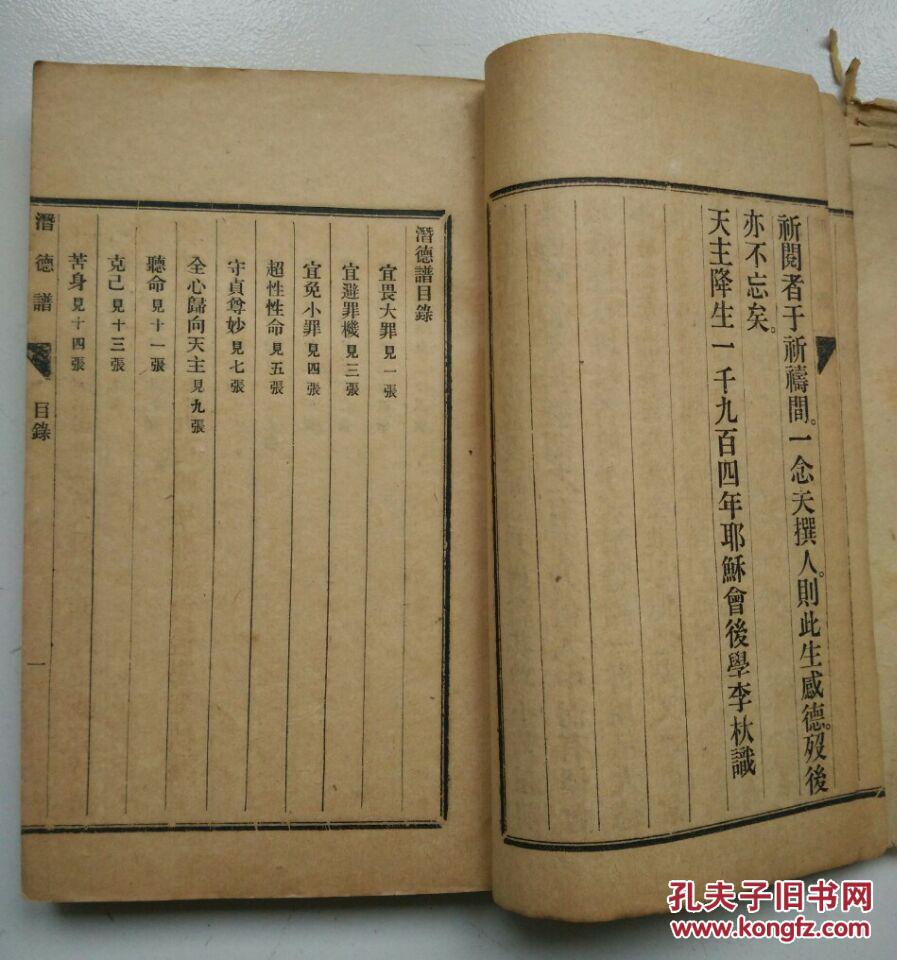 祈閱者于祈禱間。一念夫撰人。則此生感德。歿後
亦不忘矣。
天主降生一千九百四年耶穌會後學李杕識
潛德譜目錄
宜畏大罪見一張
宜避罪機見三張
宜免小罪見四張
超性性命見五張
守貞尊妙見七張
全心歸向天主見九張
聽命見十一張
克己見十三張
苦身見十四張
潛德譜 目錄 一
孔夫子旧书网
www.kongfz.com